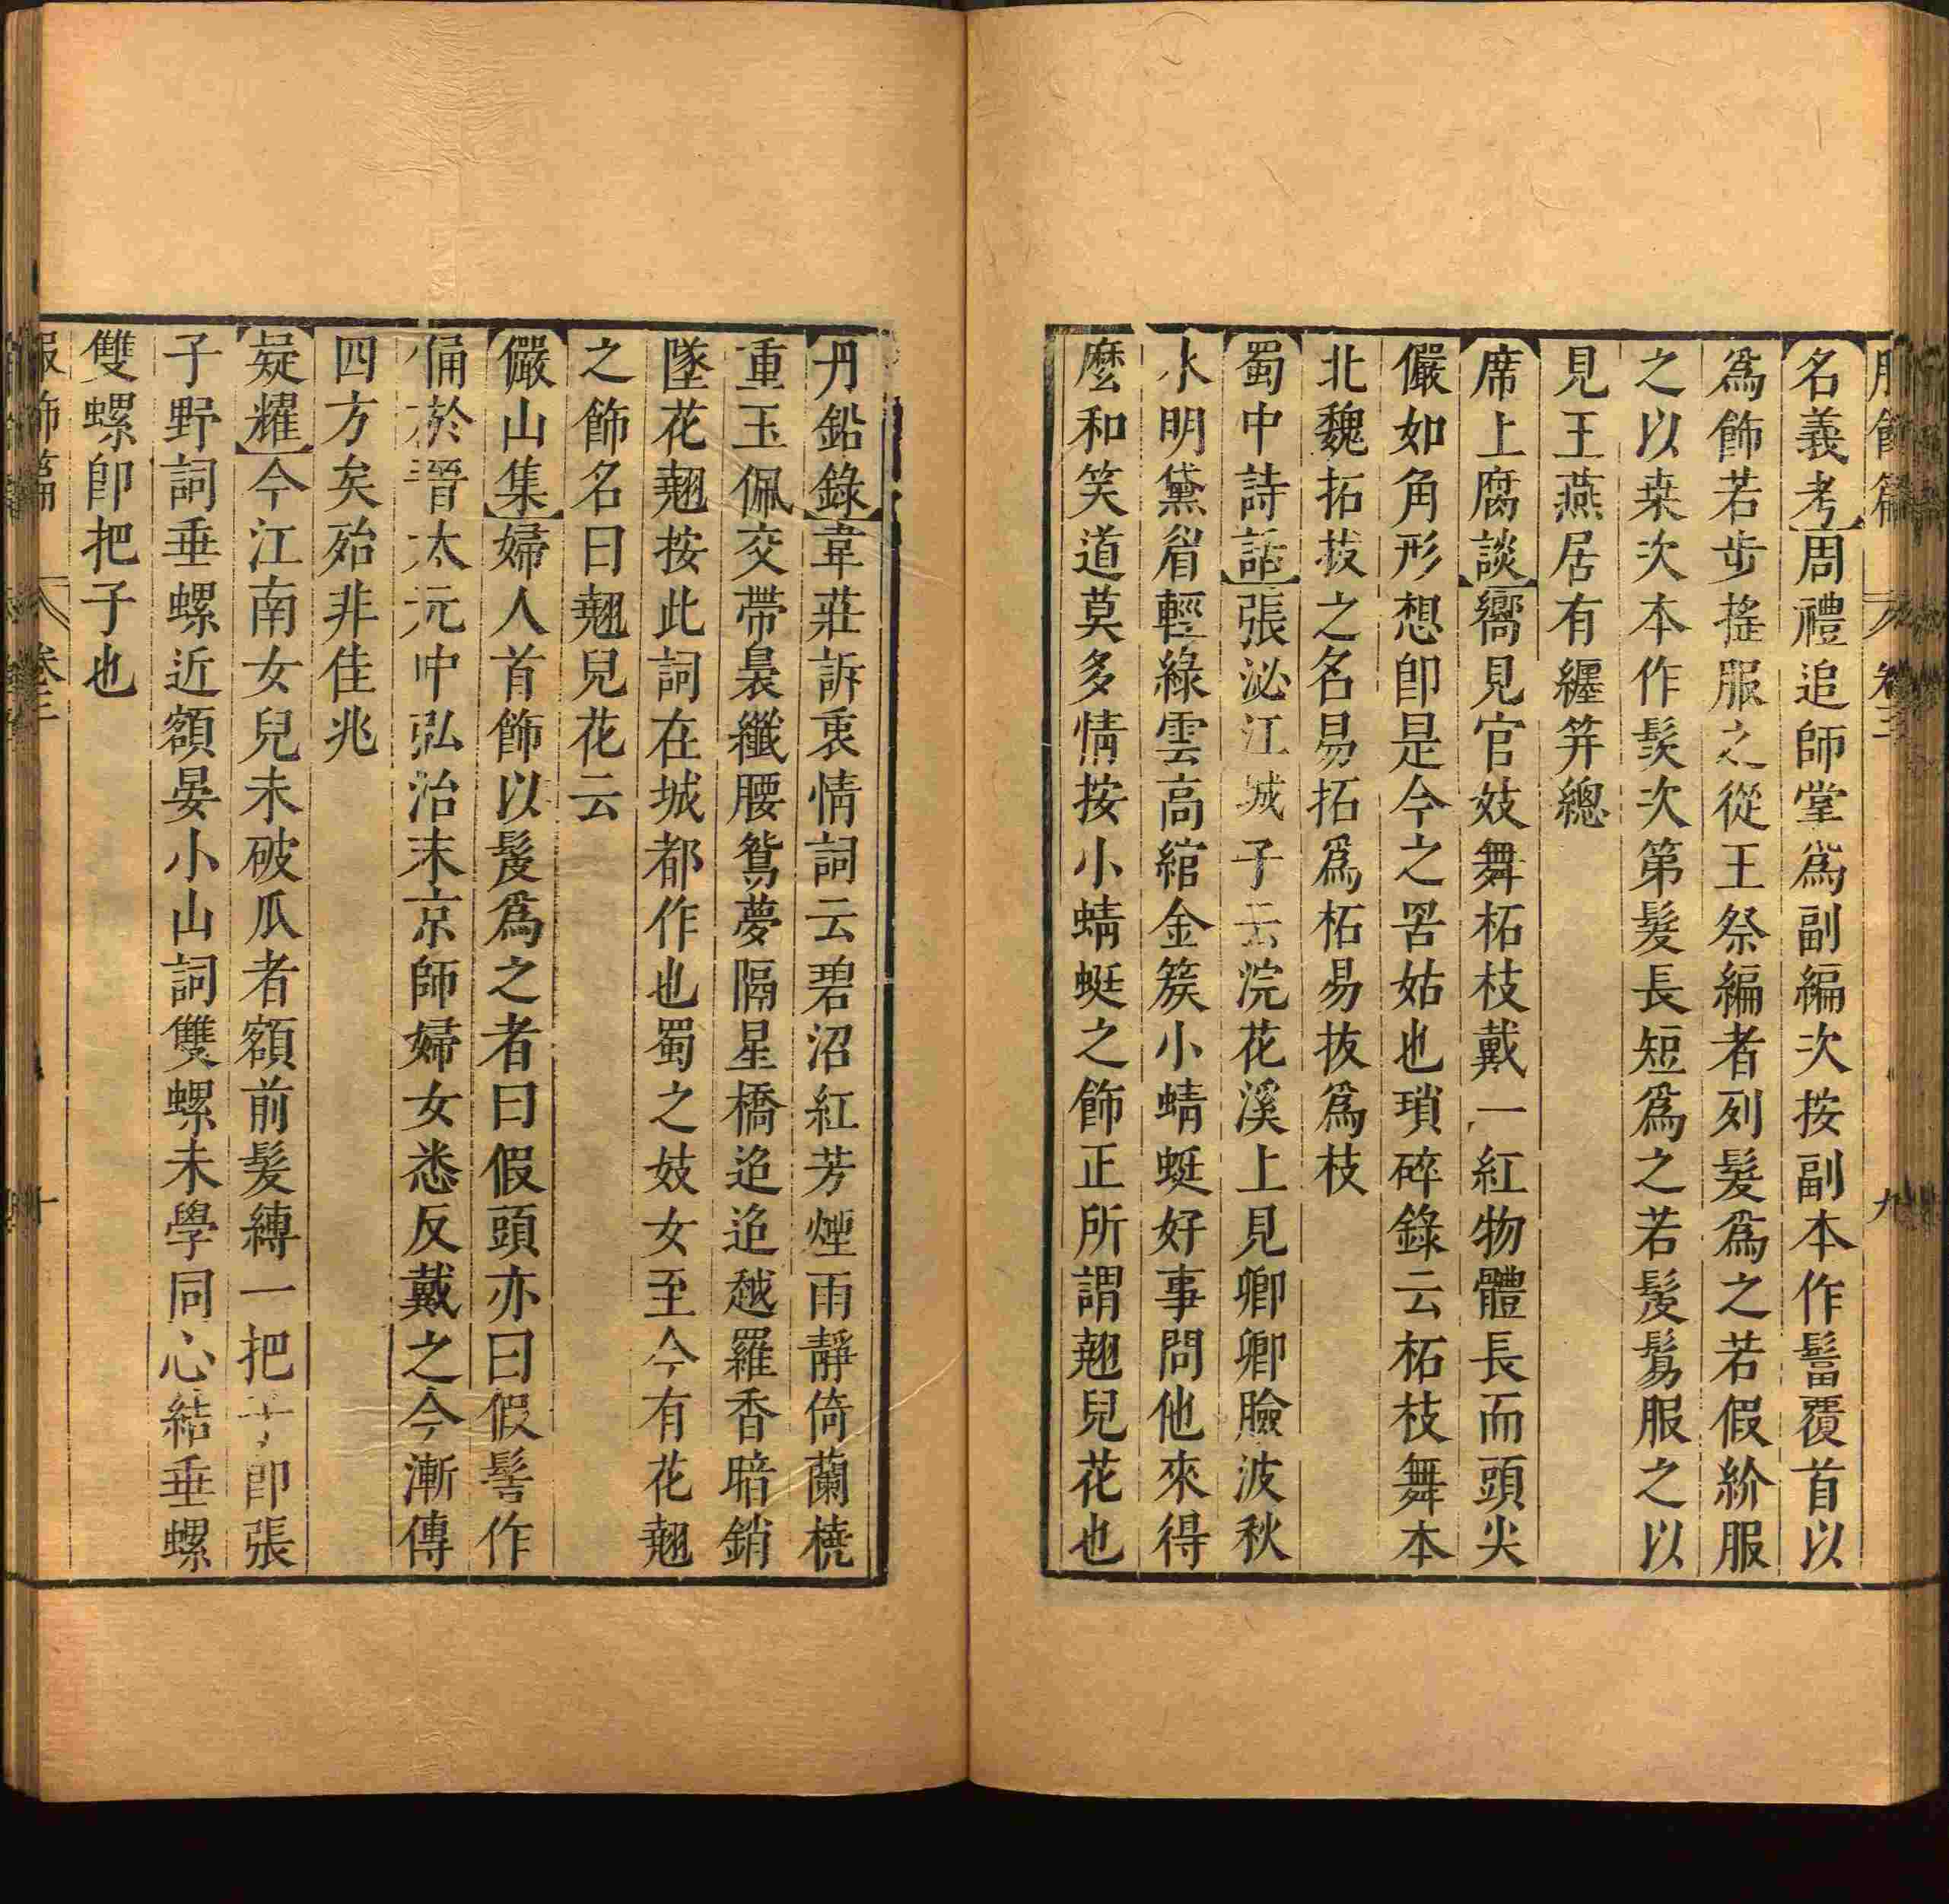 服飾篇 卷三 九
名義考周禮追師掌爲副編次按副本作髻覆首以
爲飾若步搖服之從王祭編者列髮爲之若假紒服
之以桒次本作髲次第髮長短爲之若髲髢服之以
見王燕居有纚笄總
席上腐談嚮見官妓舞柘枝戴一紅物體長而頭尖
儼如角形想卽是今之罟姑也瑣碎錄云柘枝舞本
北魏拓拔之名易拓爲柘易拔爲枝
蜀中詩話張泌江城子云浣花溪上見卿卿臉波秋
水明黛眉輕綠雲高綰金簇小蜻蜓好事問他來得
麼和笑道莫多情按小蜻蜓之飾正所謂翹兒花也
丹鉛錄韋莊訴衷情詞云碧沼紅芳煙雨靜倚蘭橈
重玉佩交帶裊纖腰鴛夢隔星橋迢迢越羅香暗銷
墜花翹按此詞在城都作也蜀之妓女至今有花翹
之飾名曰翹兒花云
儼山集婦人首飾以髲爲之者曰假頭亦曰假髻作
俑於晉太元中弘治末京師婦女悉反戴之今漸傳
四方矣殆非佳兆
疑耀今江南女兒未破瓜者額前髮縛一把子卽張
子野詞垂螺近額晏小山詞雙螺未學同心結垂螺
雙螺卽把子也
服飾篇 卷三 十